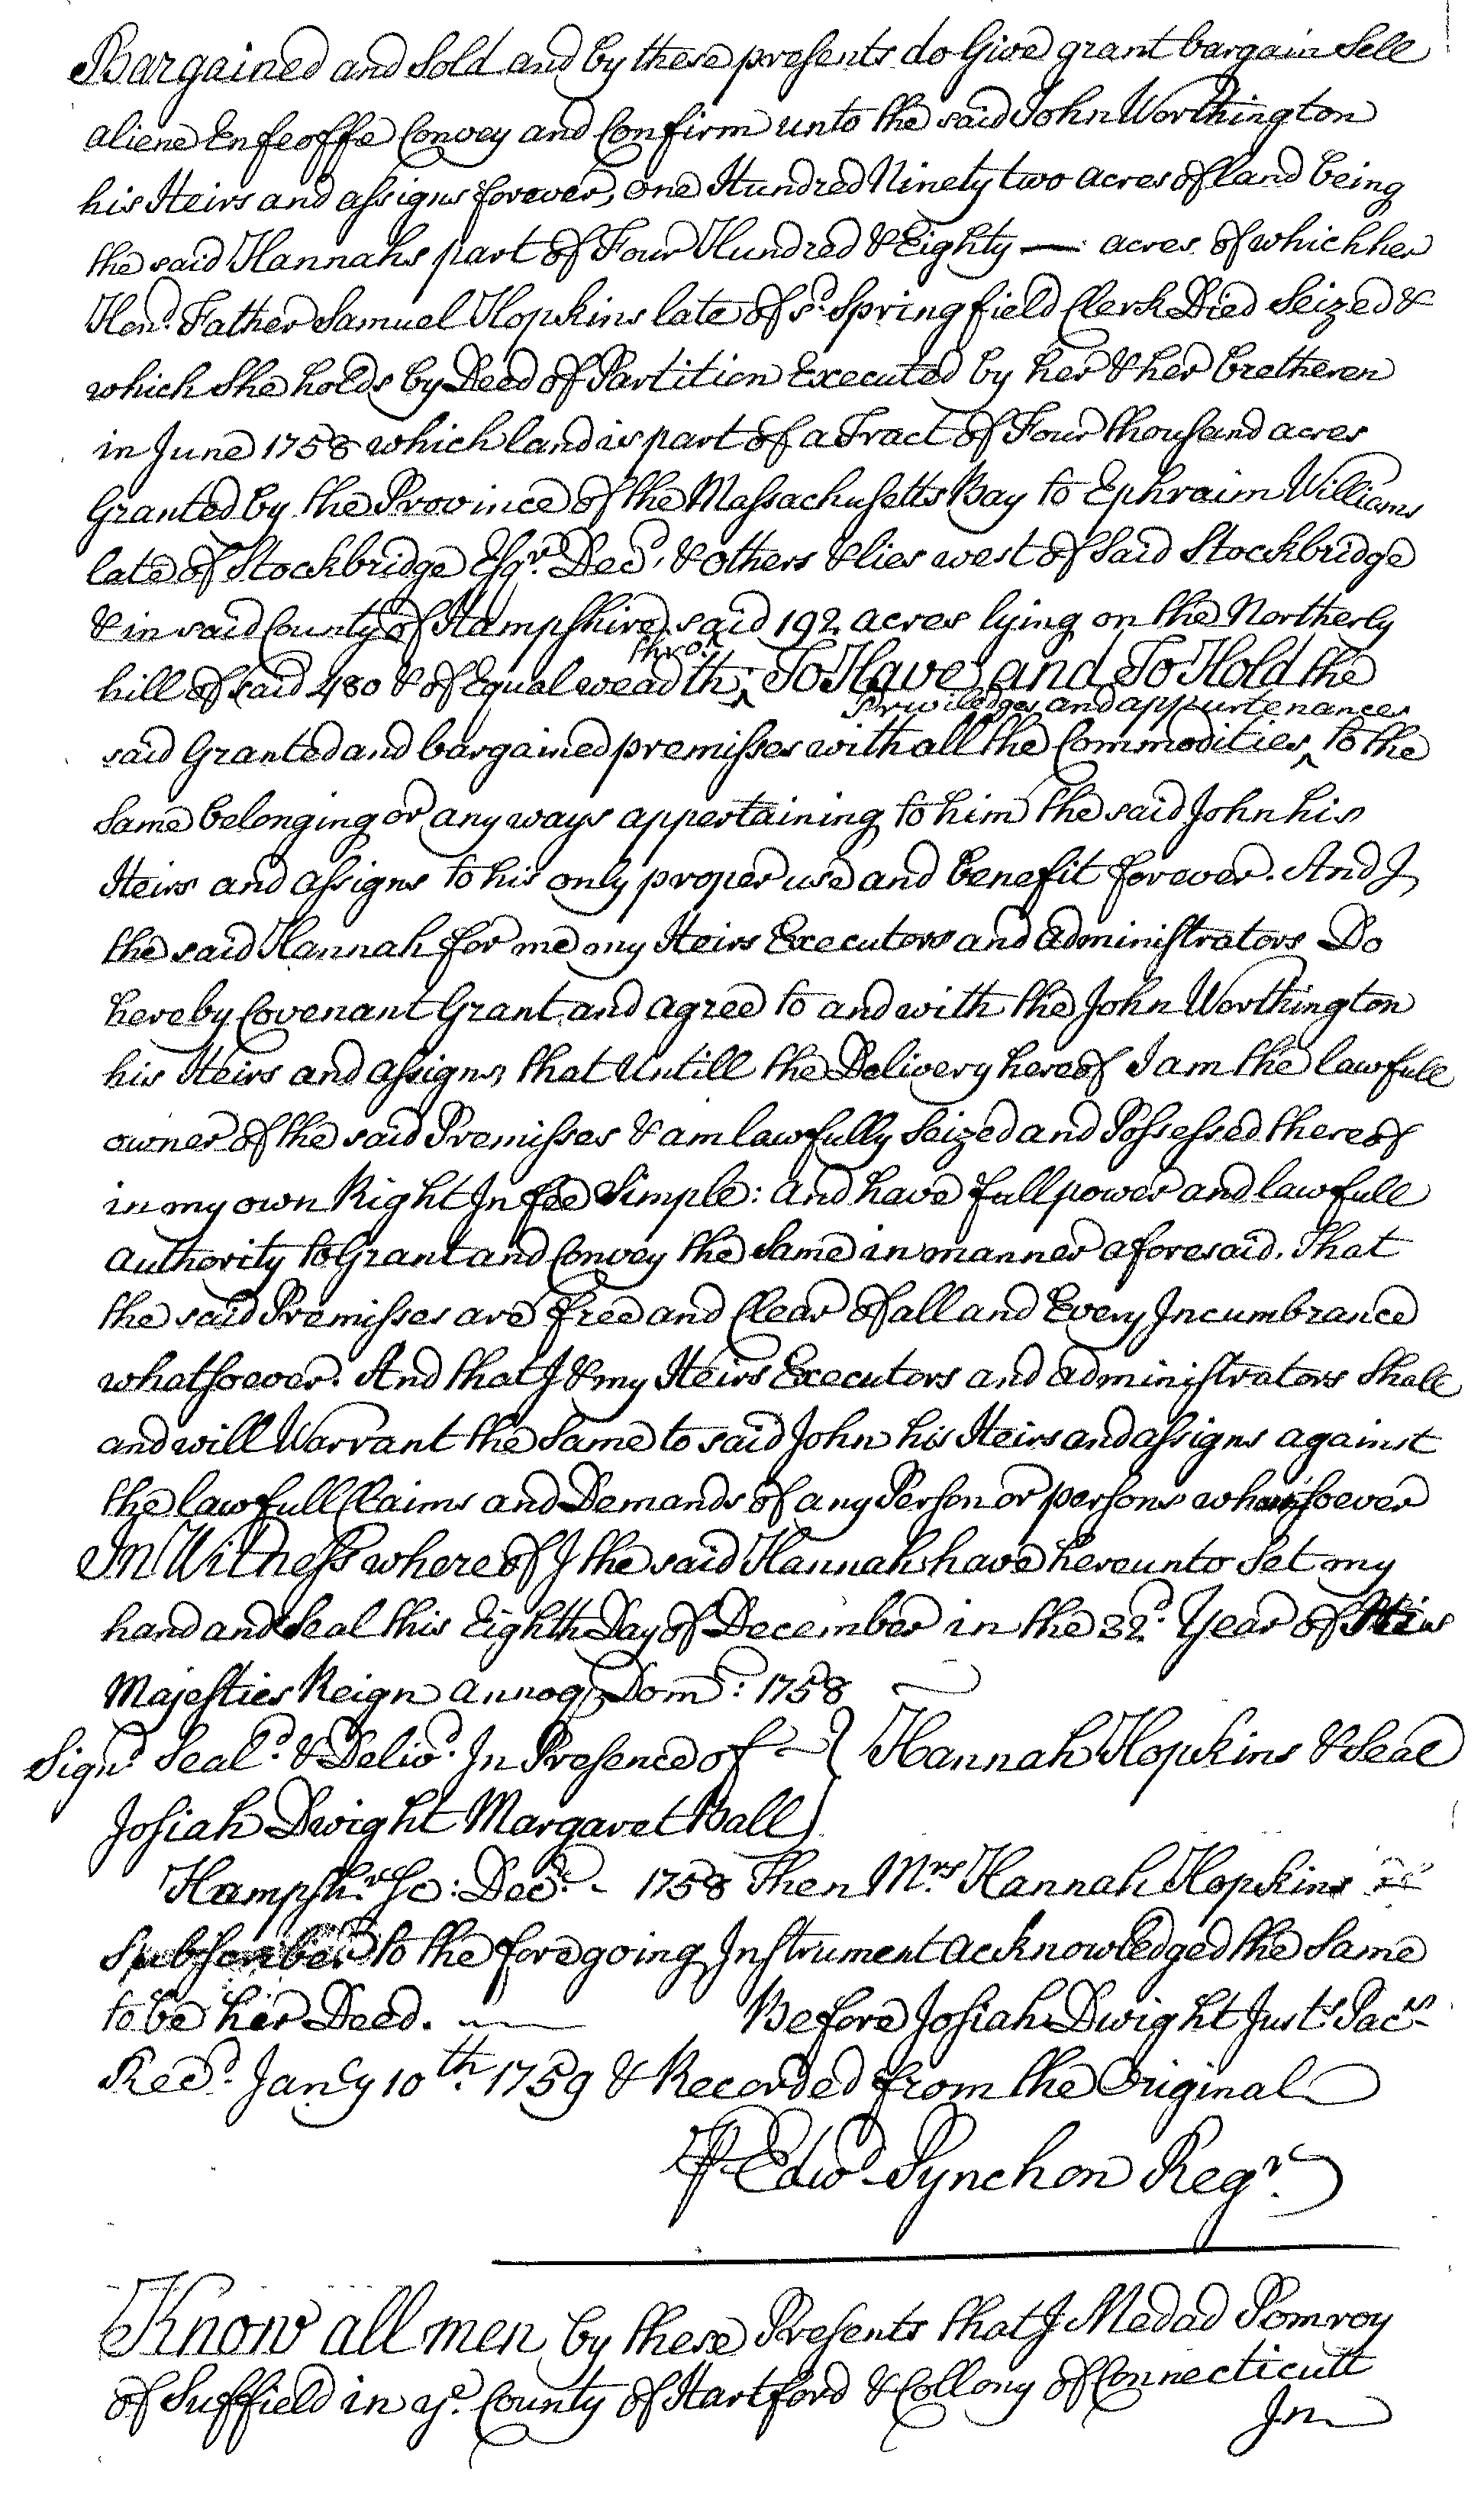 Bargained and Sold and by these presents do Give grant bargain Sell
aliene Enfeoffe Convey and Confirm unto the said John Worthington
his Heirs and assigns forever, one Hundred Ninety two acres of land being
the said Hannahs part of Four Hundred & Eighty — acres of which her
Hond. Father Samuel Hopkins late of sd. Springfield Clerk Died Seized &
which She holds by Deed of Partition Executed by her & her bretheren
in June 1758 which land is part of a Tract of Four thousand acres
Granted by the Province of the Massachusetts Bay to Ephraim Williams
late of Stockbridge Esqr. Decd. & others & lies west of Said Stockbridge
& in said County of Hampshire, said 192 acres lying on the Northerly
hill of said 480 & of Equal weadth throo; To Have and To Hold the
said Granted and bargained premisses with all the Commodities Priviledges and appurtenances to the
Same belonging or any ways appertaining to him the said John his
Heirs and assigns to his only proper use and benefit forever. And I
the said Hannah for me my Heirs Executors and administrators Do
hereby Covenant Grant and agree to and with the John Worthington
his Heirs and assigns that Untill the Delivery hereof I am the lawfull
owner of the said Premisses & am lawfully Seized and Possessed thereof
in my own Right In fee Simple: and have full power and lawfull
authority to Grant and Convey the Same in manner aforesaid. That
the said Premisses are free and Clear of all and Every Incumbrance
whatsoever. And that I & my Heirs Executors and administrators Shall
and will Warrant the Same to said John his Heirs and assigns against
the lawfull Claims and Demands of any Person or persons whomsoever
In Witness whereof I the said Hannah have hereunto Set my
hand and Seal this Eighth Day of December in the 32d. Year of His
Majesties Reign annoq Dom: 1758
Signd. Seald. & Delivd. In Presence of } Hannah Hopkins & Seal
Josiah Dwight Margaret Ball }
Hampshr. Sc: Decr. - 1758 Then Mrs. Hannah Hopkins
Subscriber to the foregoing Instrument acknowledged the Same
to be her Deed. Before Josiah Dwight Justs. Pacs.
Recd. Jany 10th. 1759 & Recorded from the Original
P Edwd Pynchon Regr.
Know all men by these Presents that I Medad Pomroy
of Suffield in ye. County of Hartford & Collony of Connecticutt
In